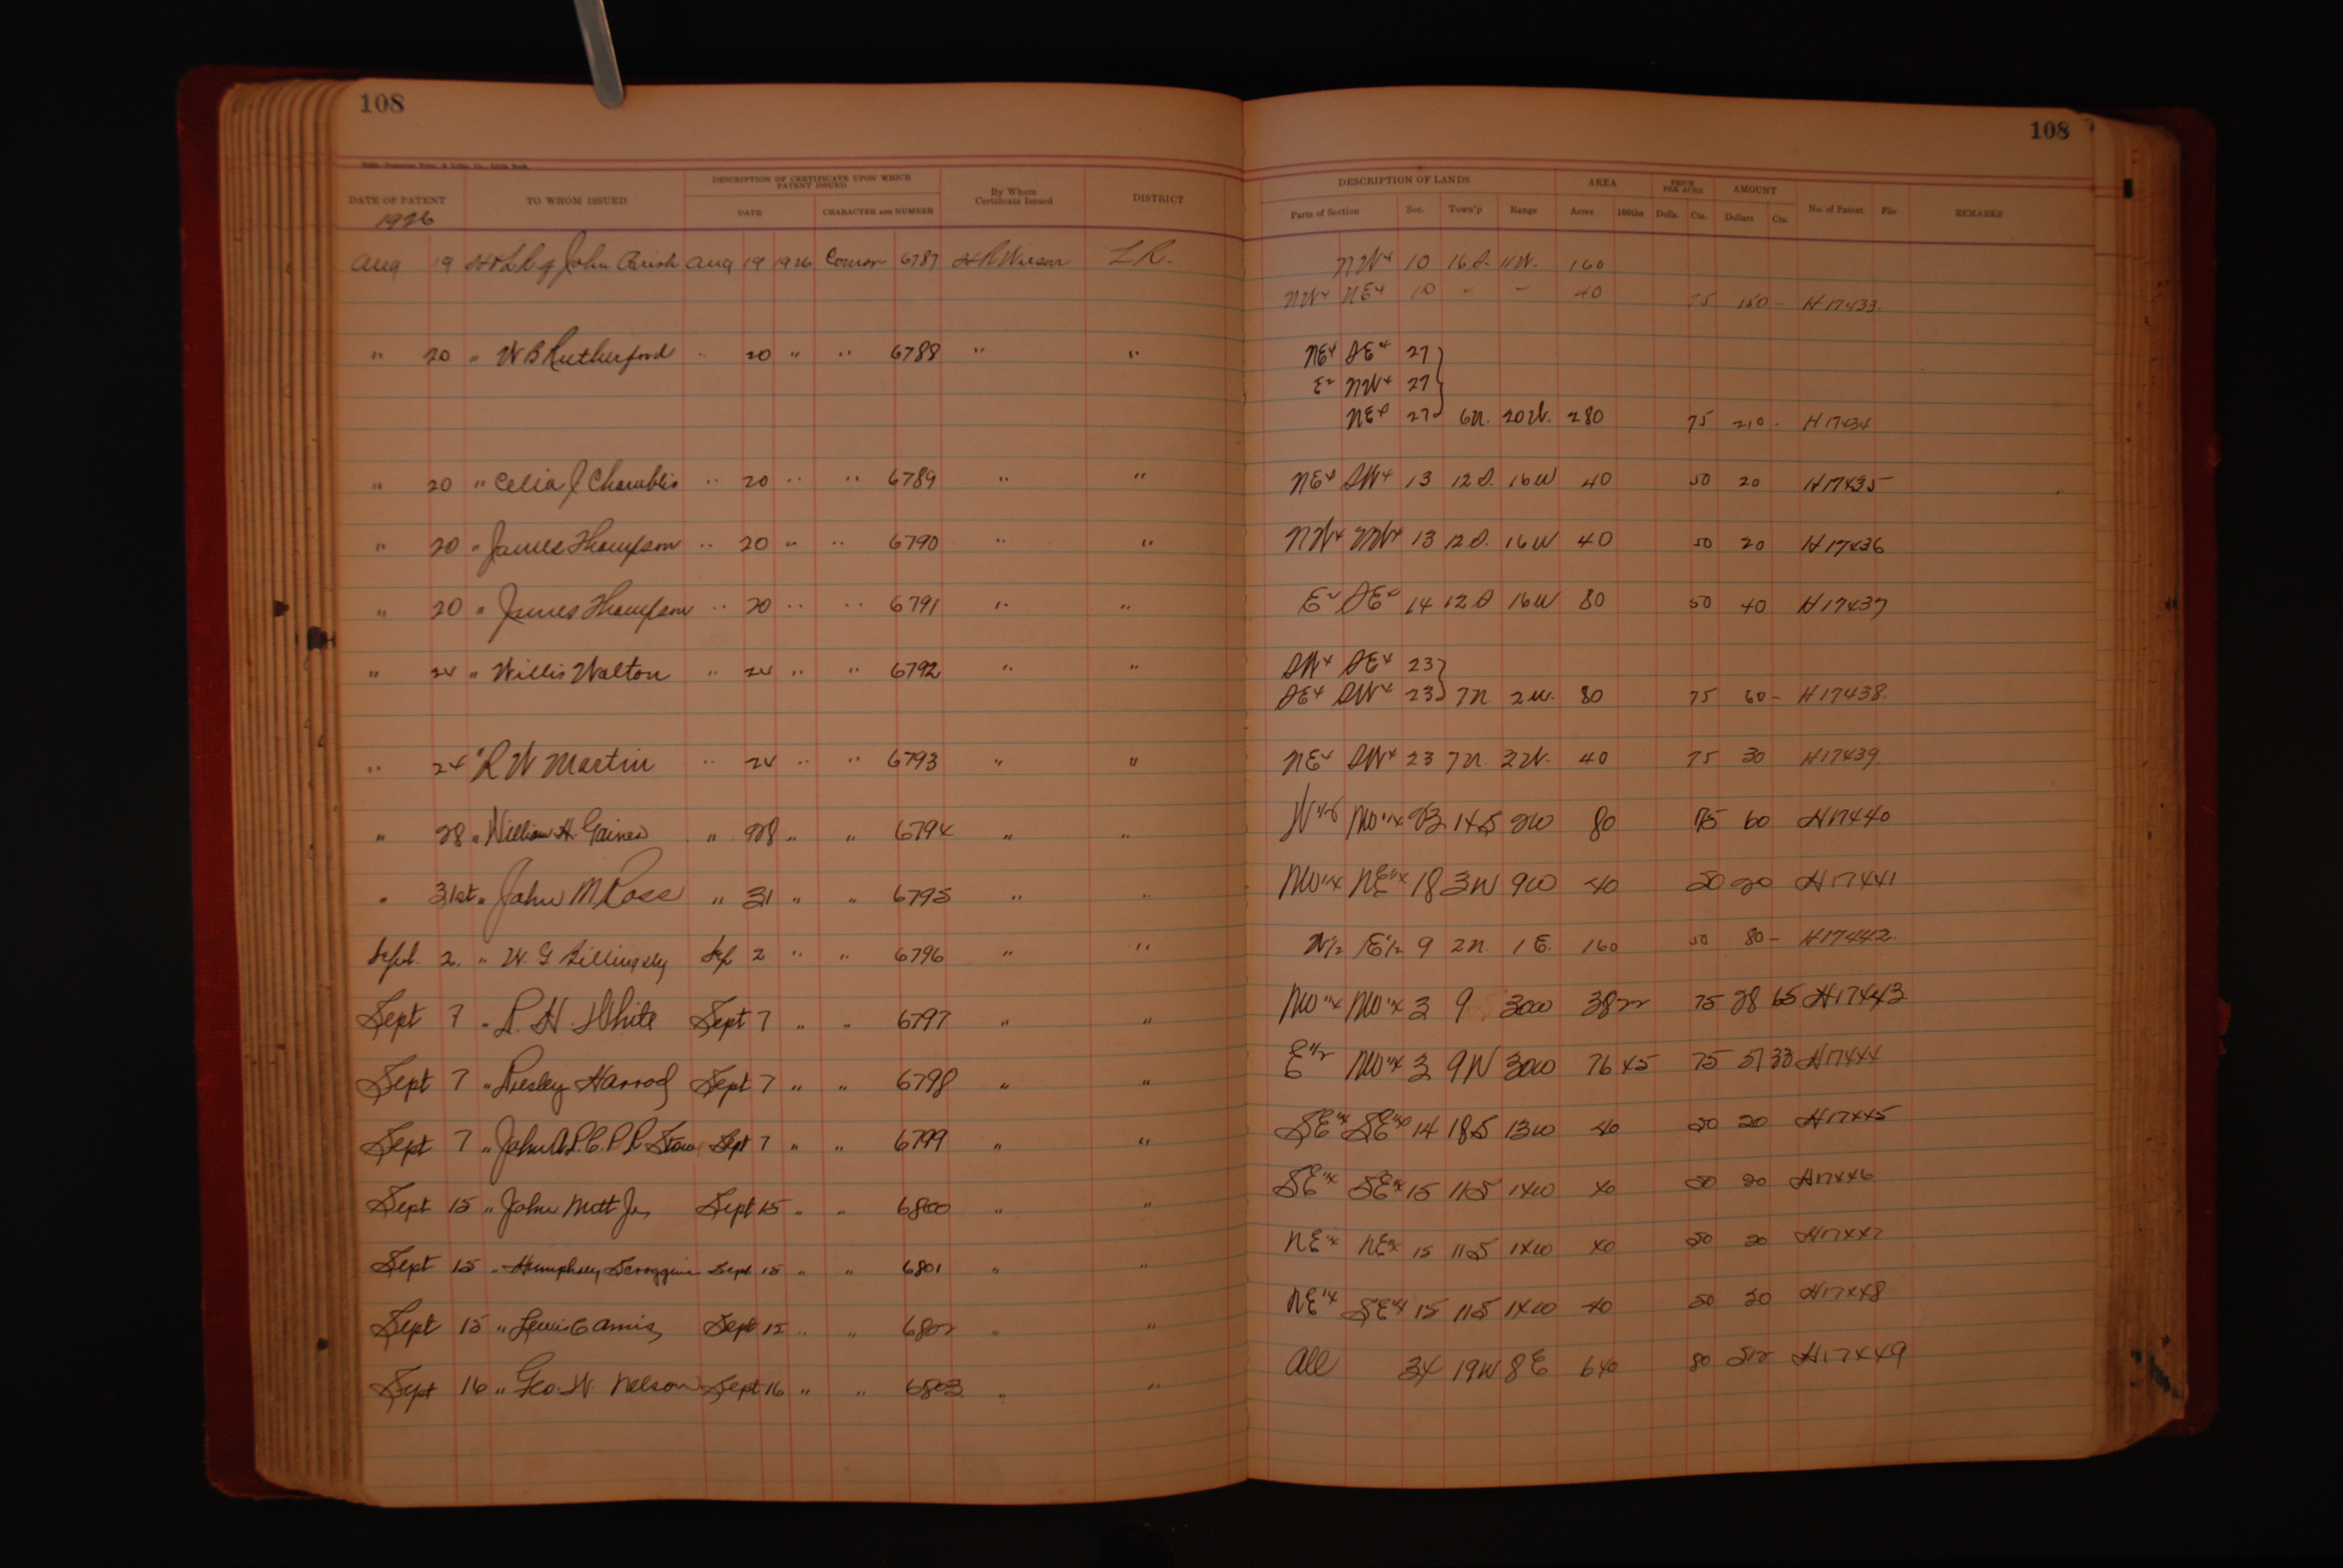 108 108
DATE OF PATENT TO WHOM ISSUED DESCRIPTION OF CERTIFICATE UPON WHICH PATENT ISSUED By Whom Certificate Issued DISTRICT DESCRIPTION OF LANDS AREA PRICE PER ACRE AMOUNT No. of Patent File REMARKS
1926 DATE CHARACTER AND NUMBER Parts of Section Sec. Town'p Range Acres 100ths Dolls. Cts. Dollars Cts.
Aug 19 John Aug 19 1926 6787 L R. NW4 10 16 S. 11W. 160
NW4 NE4 10 " " 40 75 150 - H 17433
" 20 " W B Rutherford " 20 " " 6788 " " NE4 SE4 27
E2 NW4 27
NE4 27 6N. 20W. 280 75 210 - H 17434
" 20 " Celia J Chamblis " 20 " " 6789 " " NE4 SW4 13 12 S. 16W 40 50 20 H17435
" 20 " James Thompson " 20 " " 6790 " " NW4 NW4 13 12 S. 16W 40 50 20 H17436
" 20 " James Thompson " 20 " " 6791 " " E2 SE4 14 12 S 16W 80 50 40 H17437
" 24 " Willis Walton " 24 " " 6792 " " SW4 SE4 23
SE4 SW4 23 7N. 2W. 80 75 60 - H17438
" 24 " R W Martin " 24 " " 6793 " " NE4 SW4 23 7N. 2W. 40 75 30 H17439
" 28 " William H. Gaines " 28 " " 6794 " " W1/2 NW1/4 23 14S 2W 80 75 60 H17440
" 31st " John M Ross " 31 " " 6795 " " NW1/4 NE1/4 18 3N 9W 40 50 20 H17441
Sept. 2. " W. G Billingsly Sep 2 " " 6796 " " W1/2 E1/2 9 2N. 1 E. 160 50 80 - H17442
Sept 7 " R. H. White Sept 7 " " 6797 " " NW1/4 NW1/4 3 9 30W 38 22 75 28 65 H17443
Sept 7 " Presley Harrod Sept 7 " " 6798 " " E1/2 NW1/4 3 9N 30W 76 45 75 57 33 H17444
Sept 7 " John Sept 7 " " 6799 " " SE1/4 SE1/4 14 18S 13W 40 50 20 H17445
Sept 15 " John Mott Jr, Sept 15 " " 6800 " " SE1/4 SE1/4 15 11S 14W 40 50 20 H17446
Sept 15 " Humphrey Scroggins Sept 15 " " 6801 " " NE1/4 NE1/4 15 11S 14W 40 50 20 H17447
Sept 15 " Lewis Sept 15 " " 6802 " " NE1/4 SE1/4 15 11S 14W 40 50 20 H17448
Sept 16 " Geo. W. Nelson Sept 16 " " 6803 " " All 34 19N 8E 640 80 512 H17449